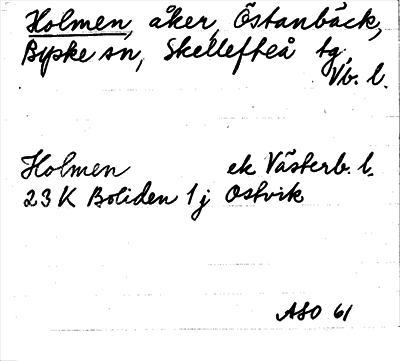 Holmen, åker, Östanbäck,
Byske sn, Skellefteå tg,
Vb. l.
Holmen ek Västerb. l.
23 K Boliden 1 j Ostvik
ASO 61